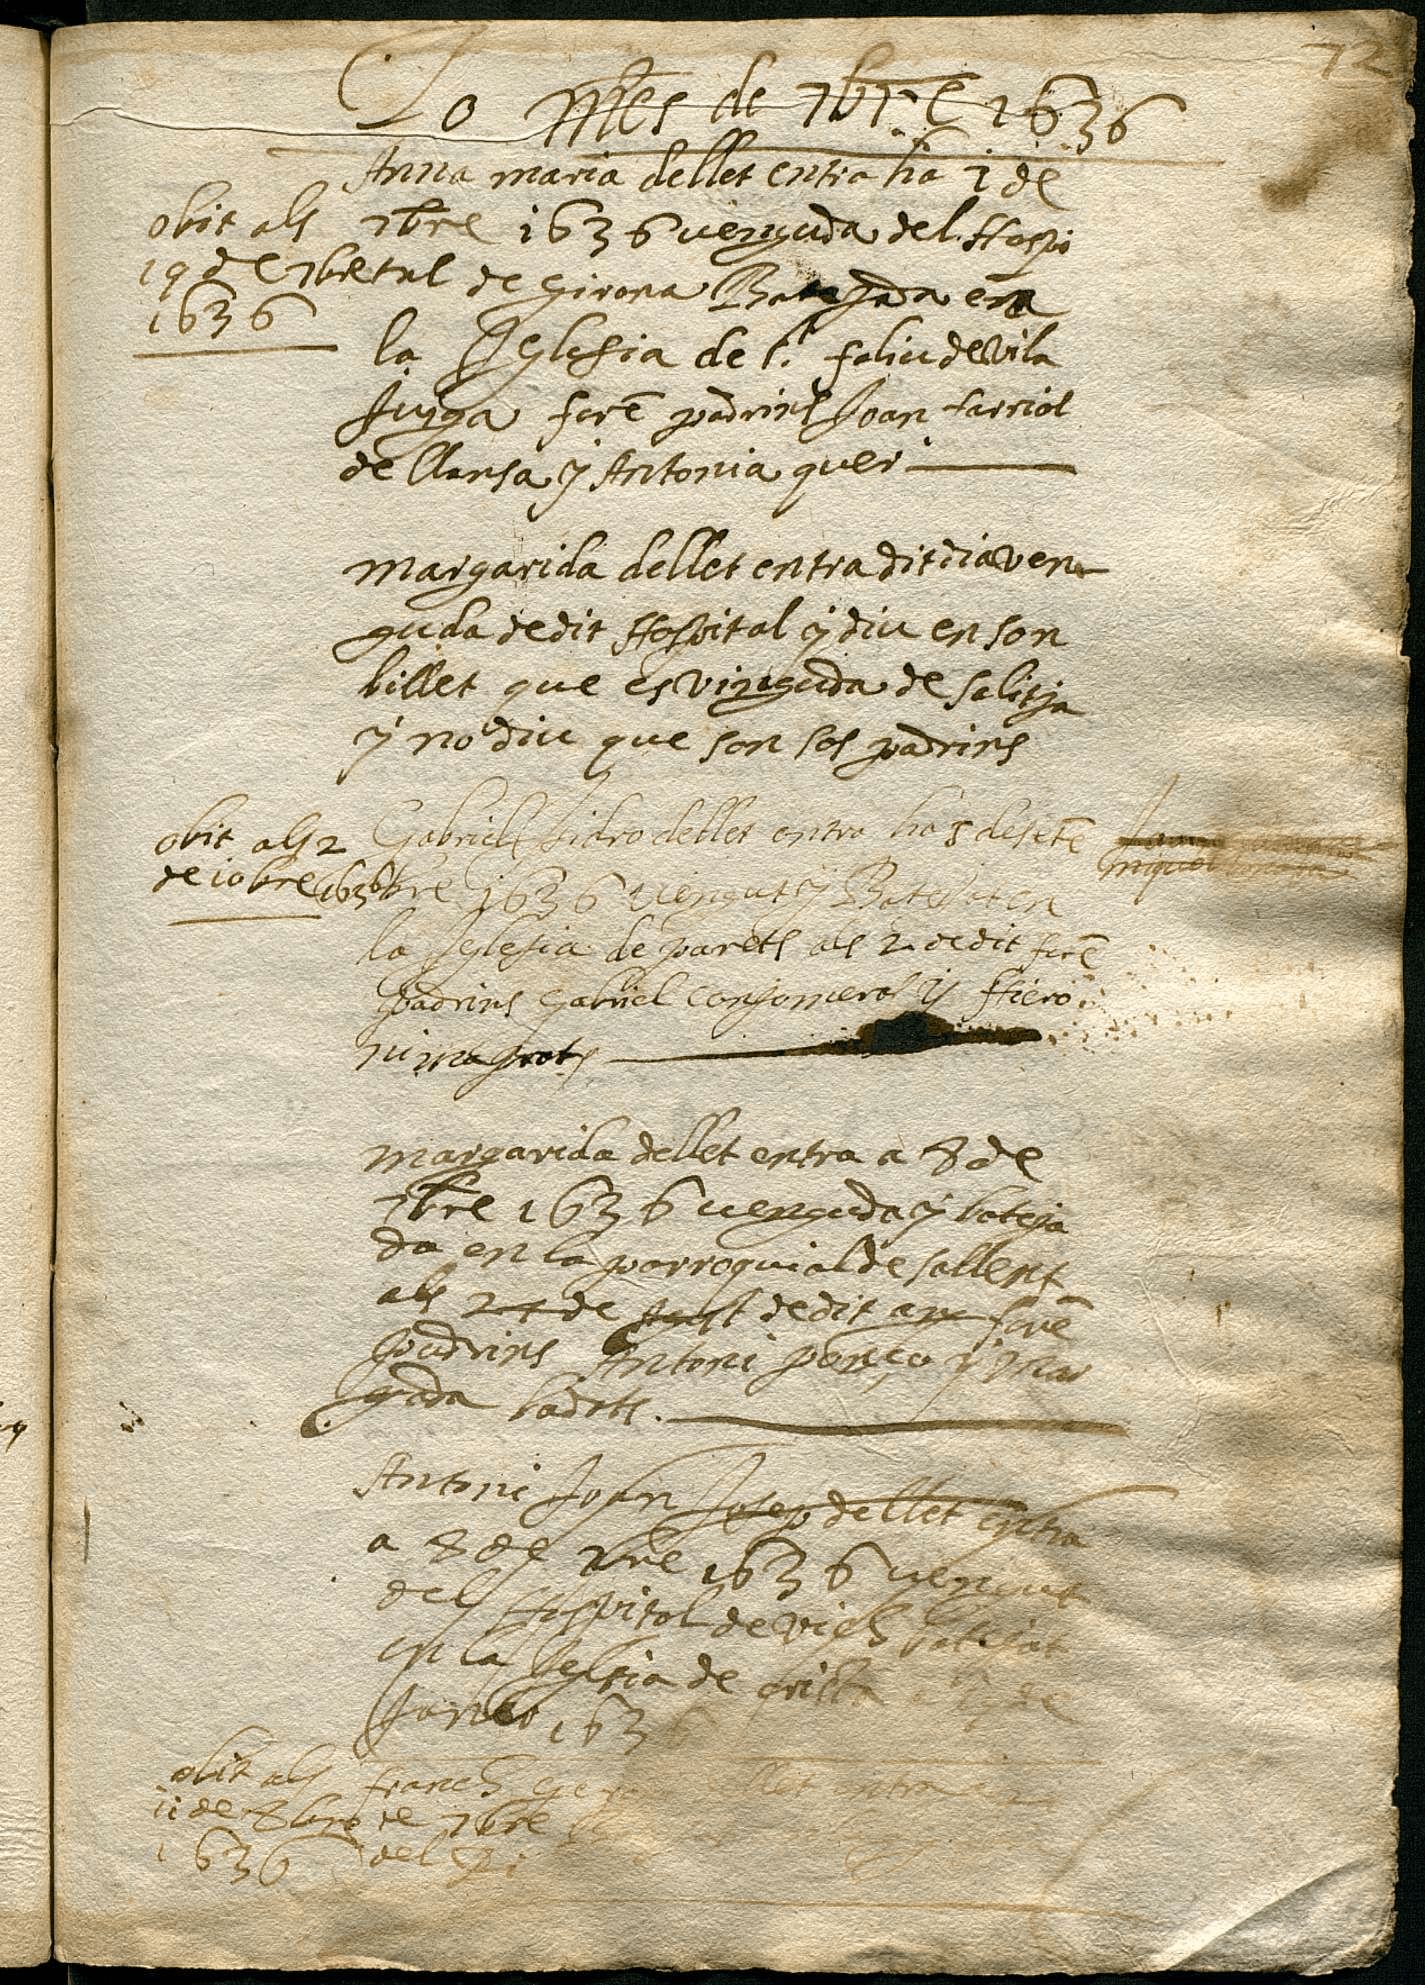 72
Lo Mes de 7bre 1636
Anna maria dellet entra ha 1 de
obit als
19 de 7bre
1636
7bre 1636 uenguda del Hospi
tal de Girona Batejada en
la Iglesia de St. feliu de Vila
Juiga forē padrins Joan farriol
de llansa y Antonia quer
margarida dellet entra dit dia ven
guda de dit Hospital y diu en son
billet que es vinguda de salitja
y no diu que son sos padrins
obit als 2
de 10bre 1636
Gabriel Isidro dellet entra ha 5 de setē
bre 1636 uengut y Batejat en
la Iglesia de parets als 2 de dit forē
padrins Gabriel y Hiero
nima prats
margarida dellet entra a 8 de
7bre 1636 uenguda y bateja
da en la parroquial de sallent
als 24 de Agst de dit any forē
padrins Antoni y Mar
gada
Antoni Joan Josep dellet entra
a 8 de 7bre 1636 uengut
del Hospital de Vich batejat
en la Iglesia de
1636
obit als
11 de 8bre
1636
franch dellet entra
de 7bre
del